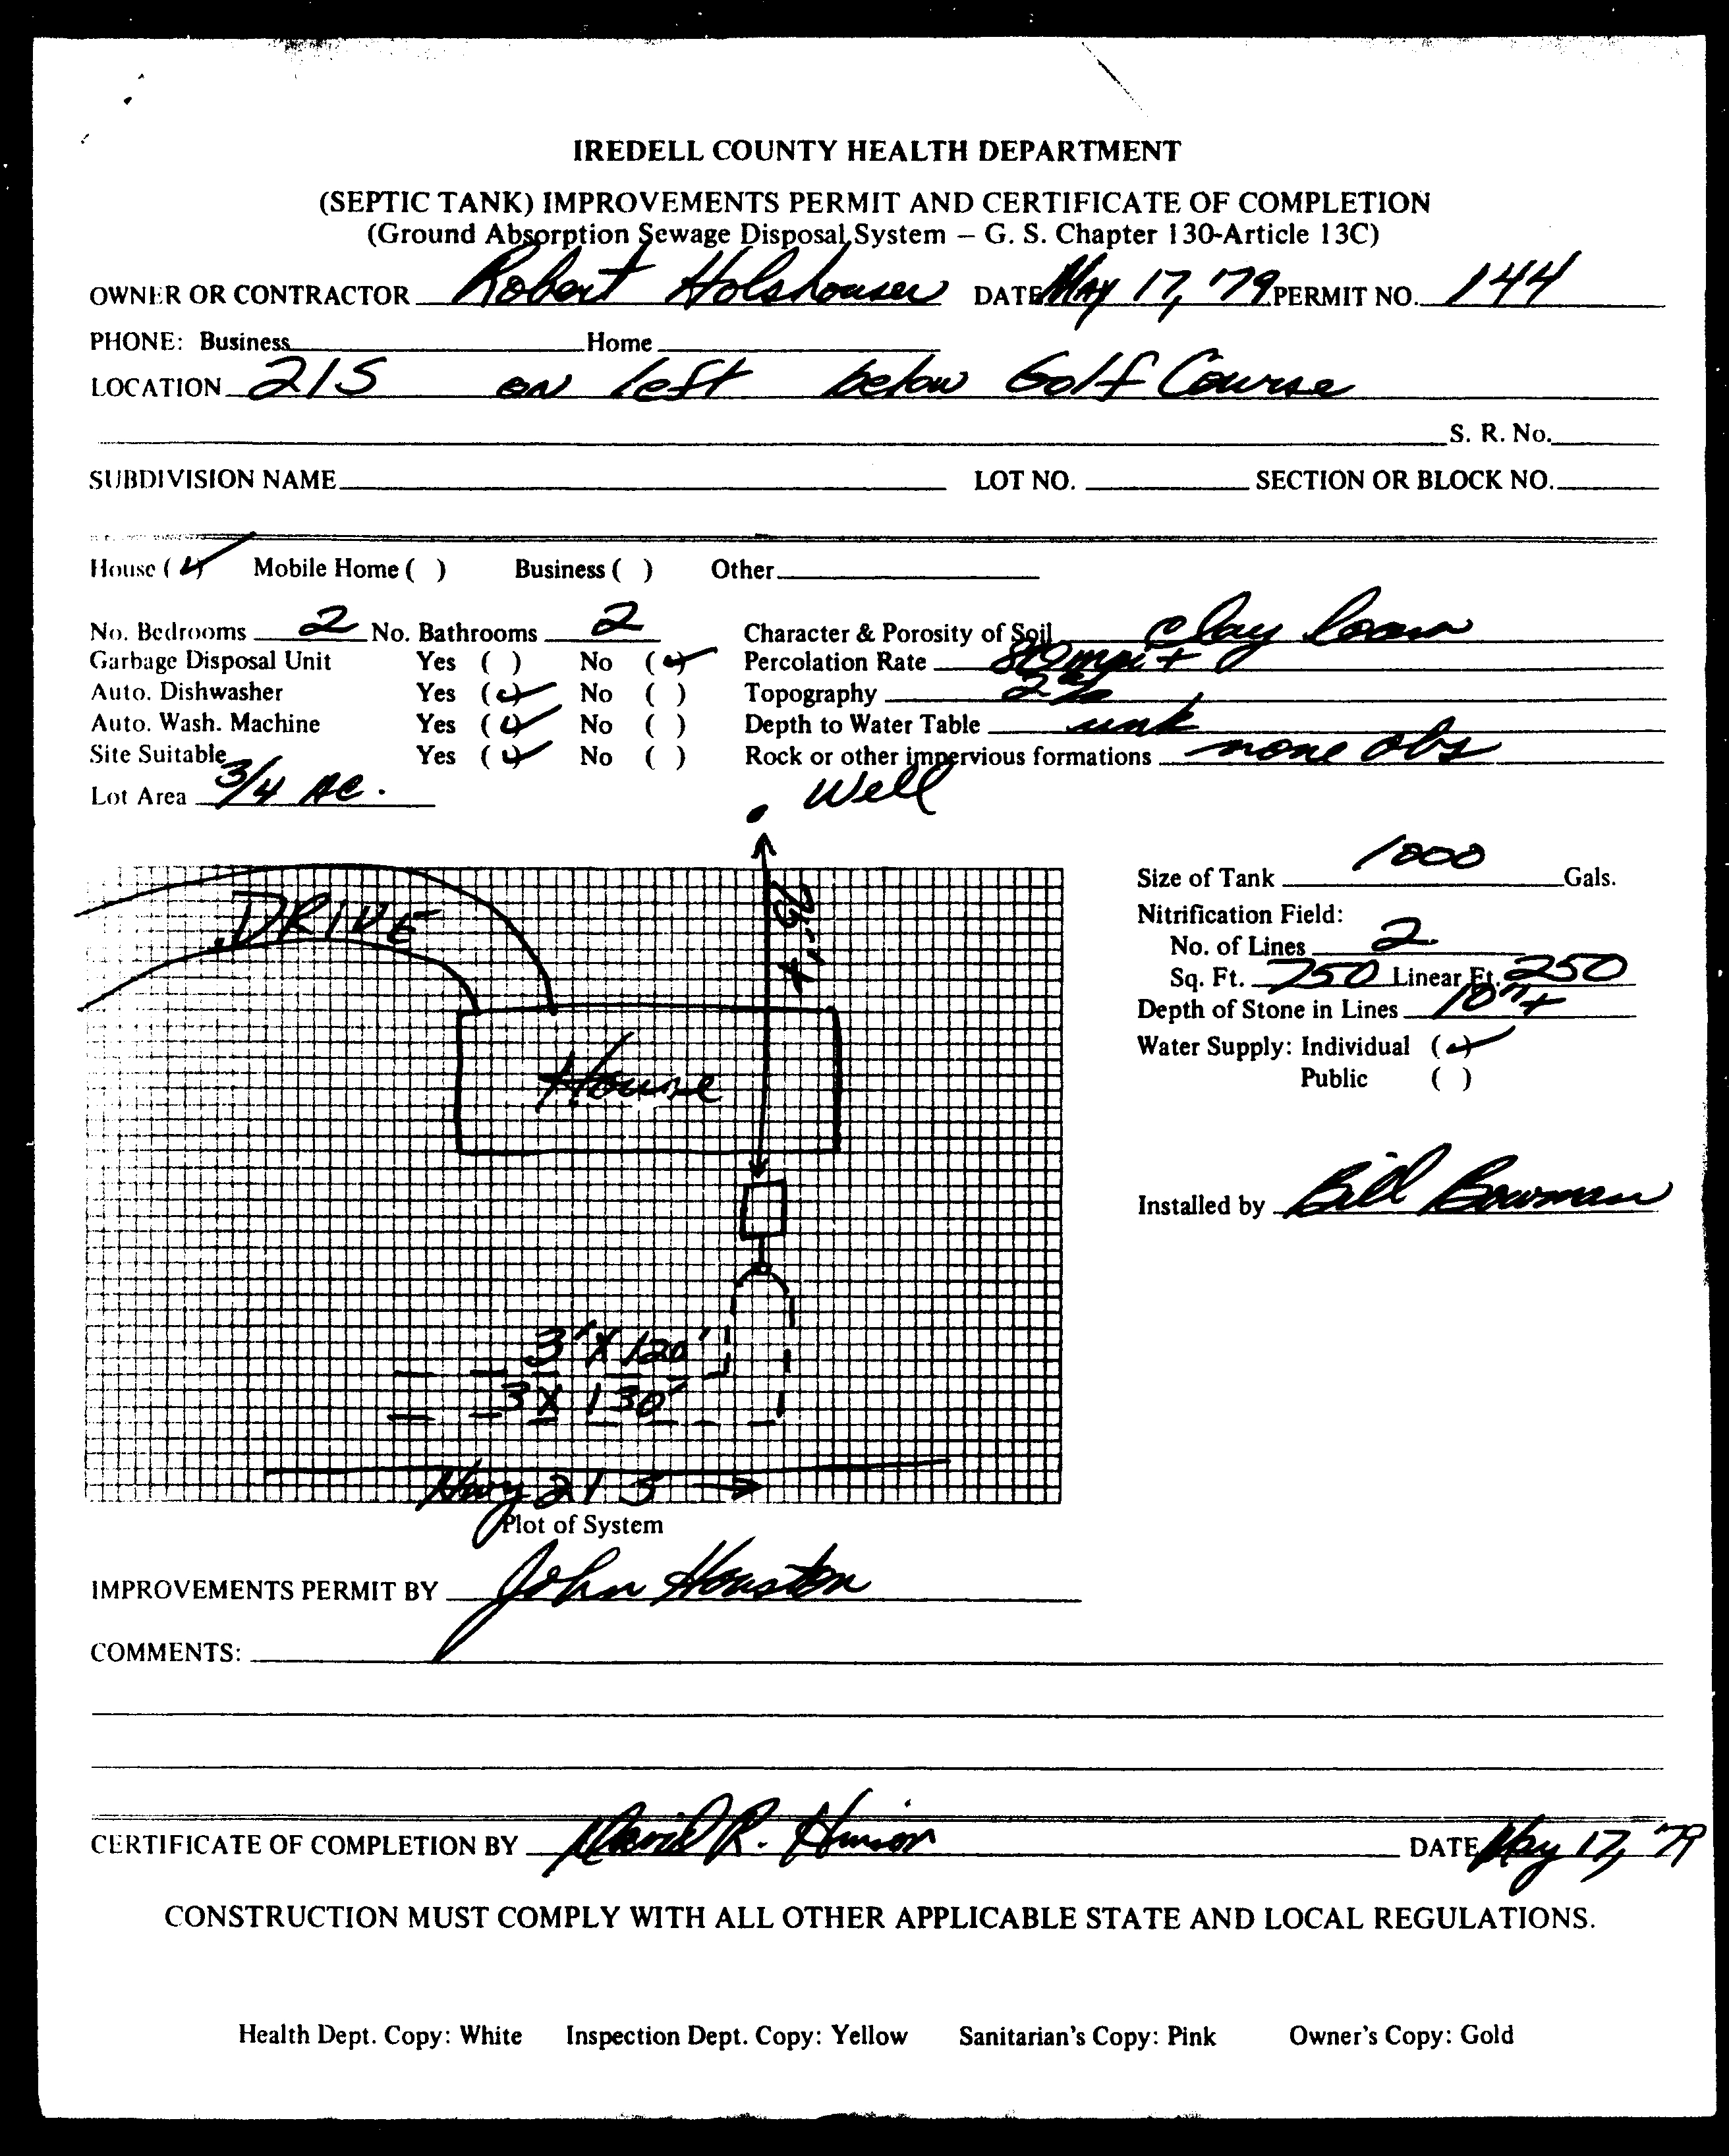 IREDELL COUNTY HEALTH DEPARTMENT
(SEPTIC TANK) IMPROVEMENTS PERMIT AND CERTIFICATE OF COMPLETION
(Ground Absorption Sewage Disposal System – G. S. Chapter 130-Article 13C)
OWNER OR CONTRACTOR Robert Holshouser DATE May 17, '79 PERMIT NO. 144
PHONE: Business Home
LOCATION 21S on left below Golf Course
S. R. No.
SUBDIVISION NAME LOT NO. SECTION OR BLOCK NO.
House (✓) Mobile Home ( ) Business ( ) Other
No. Bedrooms 2 No. Bathrooms 2 Character & Porosity of Soil clay loam
Garbage Disposal Unit Yes ( ) No (✓) Percolation Rate 80 mpi +
Auto. Dishwasher Yes (✓) No ( ) Topography 2%
Auto. Wash. Machine Yes (✓) No ( ) Depth to Water Table unk
Site Suitable Yes (✓) No ( ) Rock or other impervious formations none obs
Lot Area 3/4 AC.
Well
Size of Tank 1000 Gals.
DRIVE
Nitrification Field:
No. of Lines 2
Sq. Ft. 750 Linear Ft. 250
Depth of Stone in Lines 10"+
Water Supply: Individual (✓)
Public ( )
House
Installed by Bill Bowman
3' X 120'
3 X 130'
Hwy 21 S →
Plot of System
IMPROVEMENTS PERMIT BY John Houston
COMMENTS:
CERTIFICATE OF COMPLETION BY David R. Hinson DATE May 17, '79
CONSTRUCTION MUST COMPLY WITH ALL OTHER APPLICABLE STATE AND LOCAL REGULATIONS.
Health Dept. Copy: White Inspection Dept. Copy: Yellow Sanitarian's Copy: Pink Owner's Copy: Gold